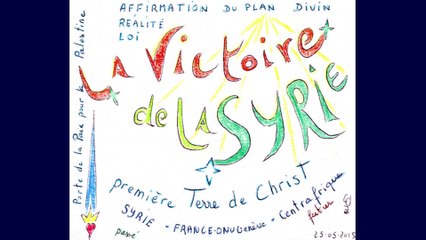 AFFIRMATION DU PLAN DIVIN
RÉALITÉ
LOI
Porte de la Paix pour la Palestine
LA VICTOIRE
de LA SYRIE
première Terre de Christ
SYRIE - FRANCE-ONU Genève - Centrafrique
passé
futur
25-05-2015